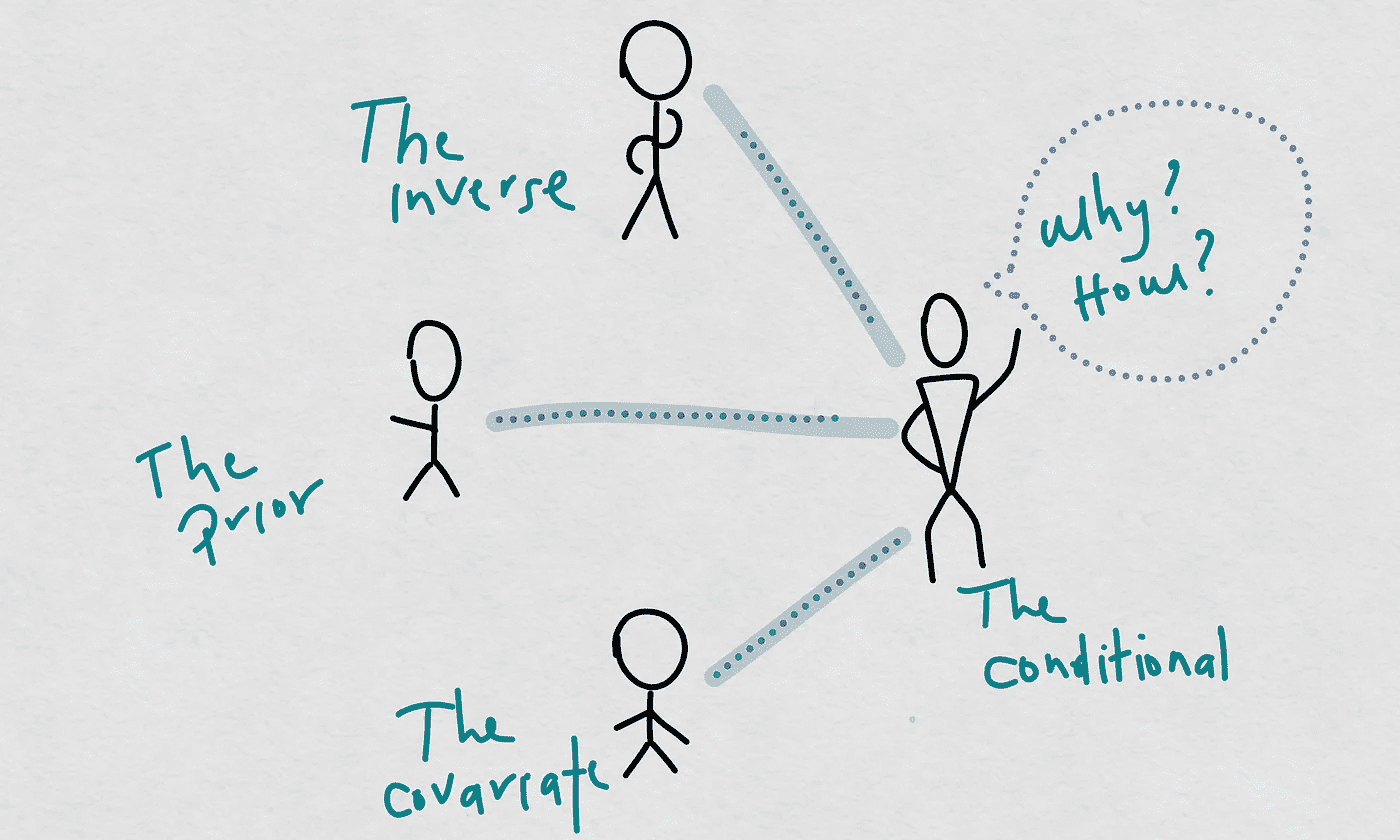 The
inverse
Why?
How?
The
Prior
The
conditional
The
covariate